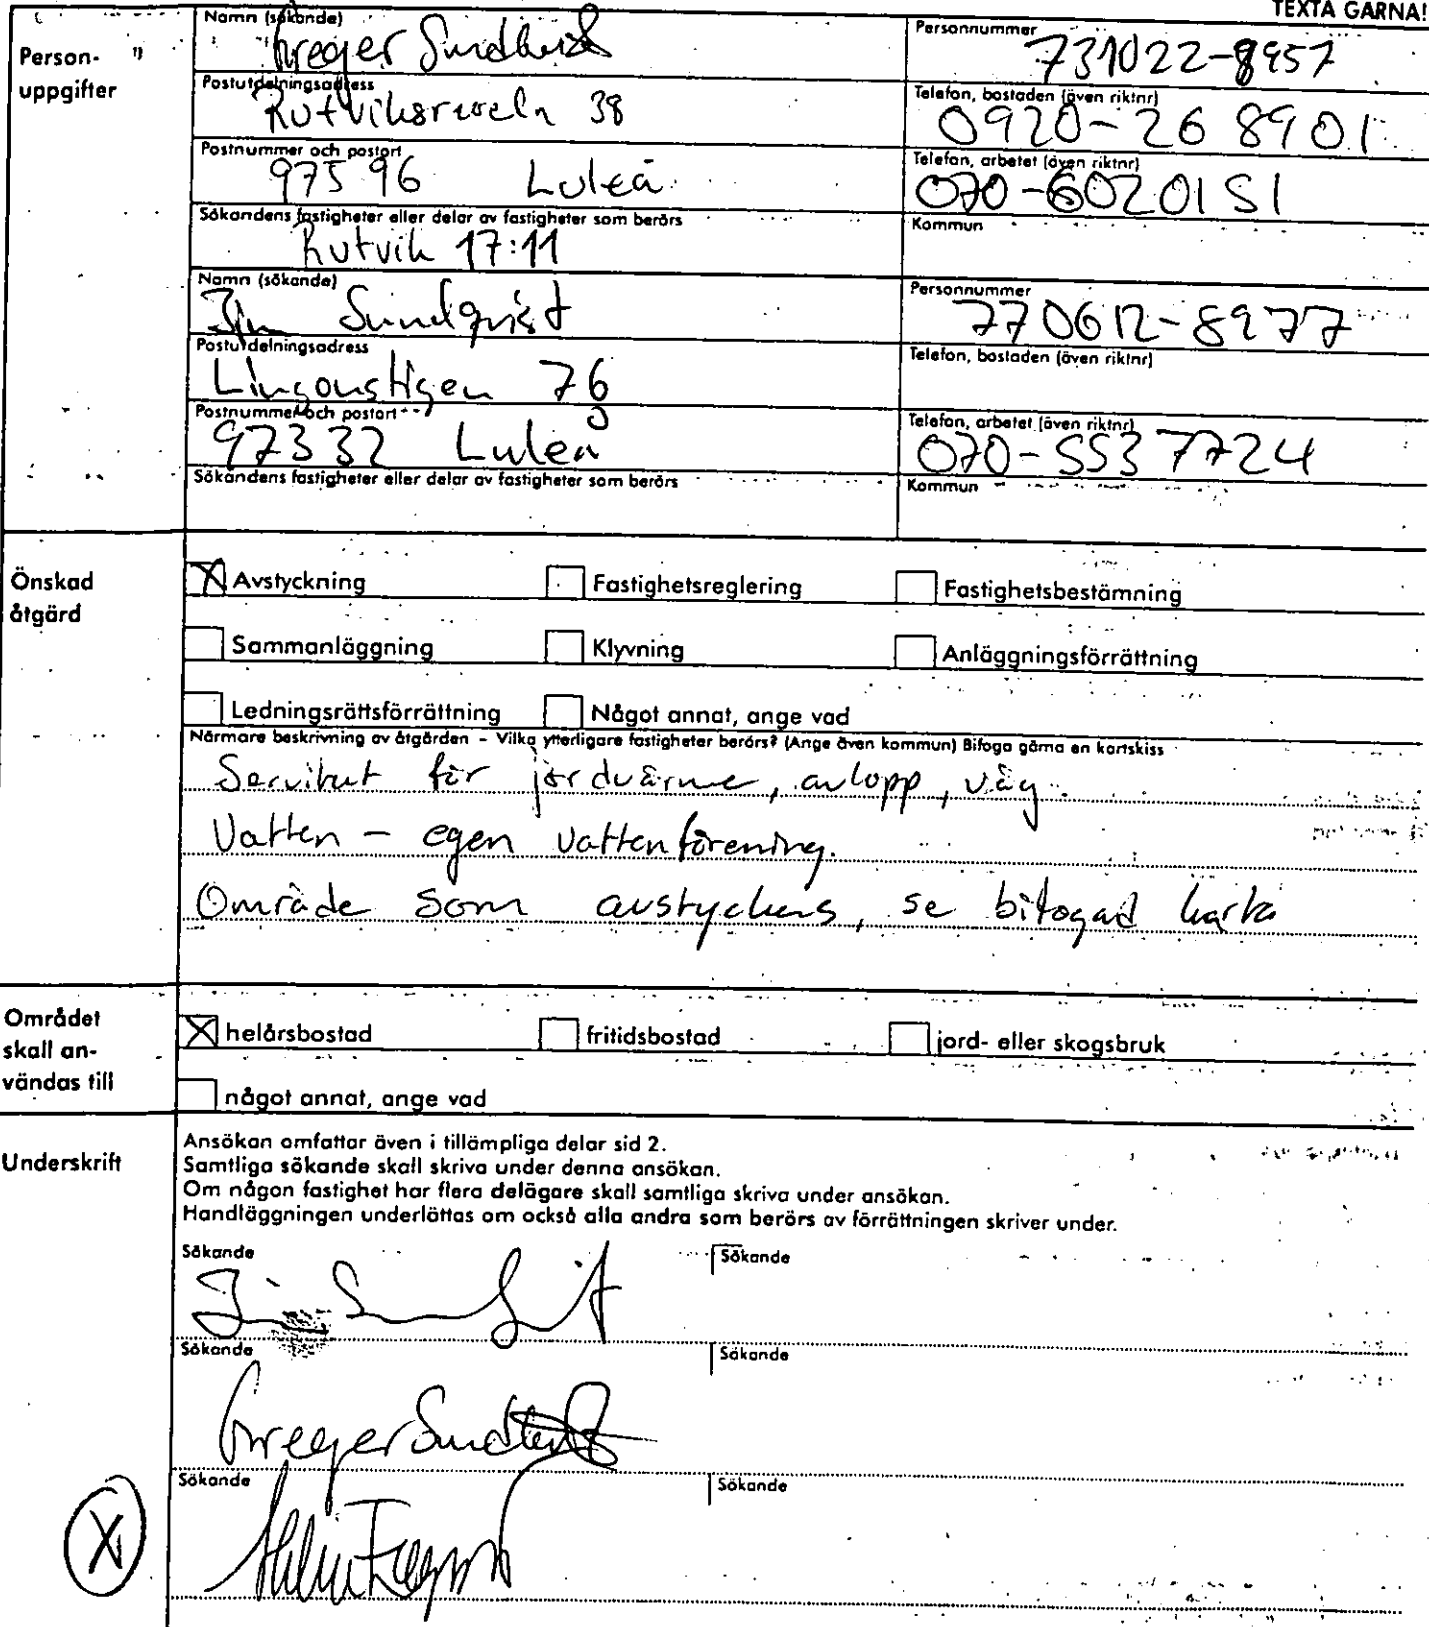 TEXTA GÄRNA!
Person-
uppgifter
Namn (sökande)
Greger
Personnummer
731022-8957
Postutdelningsadress
38
Telefon, bostaden (även riktnr)
0920-26 8901
Postnummer och postort
975 96 Luleå
Telefon, arbetet (även riktnr)
070-6020151
Sökandens fastigheter eller delar av fastigheter som berörs
Rutvik 17:11
Kommun
Namn (sökande)
Jim Sundqvist
Personnummer
770612-8977
Postutdelningsadress
Lingonstigen 76
Telefon, bostaden (även riktnr)
Postnummer och postort
97332 Luleå
Telefon, arbetet (även riktnr)
070-5537724
Sökandens fastigheter eller delar av fastigheter som berörs
Kommun
Önskad
åtgärd
X Avstyckning
Fastighetsreglering
Fastighetsbestämning
Sammanläggning
Klyvning
Anläggningsförrättning
Ledningsrättsförrättning
Något annat, ange vad
Närmare beskrivning av åtgärden - Vilka ytterligare fastigheter berörs? (Ange även kommun) Bifoga gärna en kartskiss
Servitut för jordvärme, avlopp, väg.
Vatten - egen vattenförening.
Område som avstyckas, se bifogad karta
Området
skall an-
vändas till
X helårsbostad
fritidsbostad
jord- eller skogsbruk
något annat, ange vad
Underskrift
Ansökan omfattar även i tillämpliga delar sid 2.
Samtliga sökande skall skriva under denna ansökan.
Om någon fastighet har flera delägare skall samtliga skriva under ansökan.
Handläggningen underlättas om också alla andra som berörs av förrättningen skriver under.
Sökande
Sökande
Jim Sundqvist
Sökande
Sökande
Greger
Sökande
Sökande
X